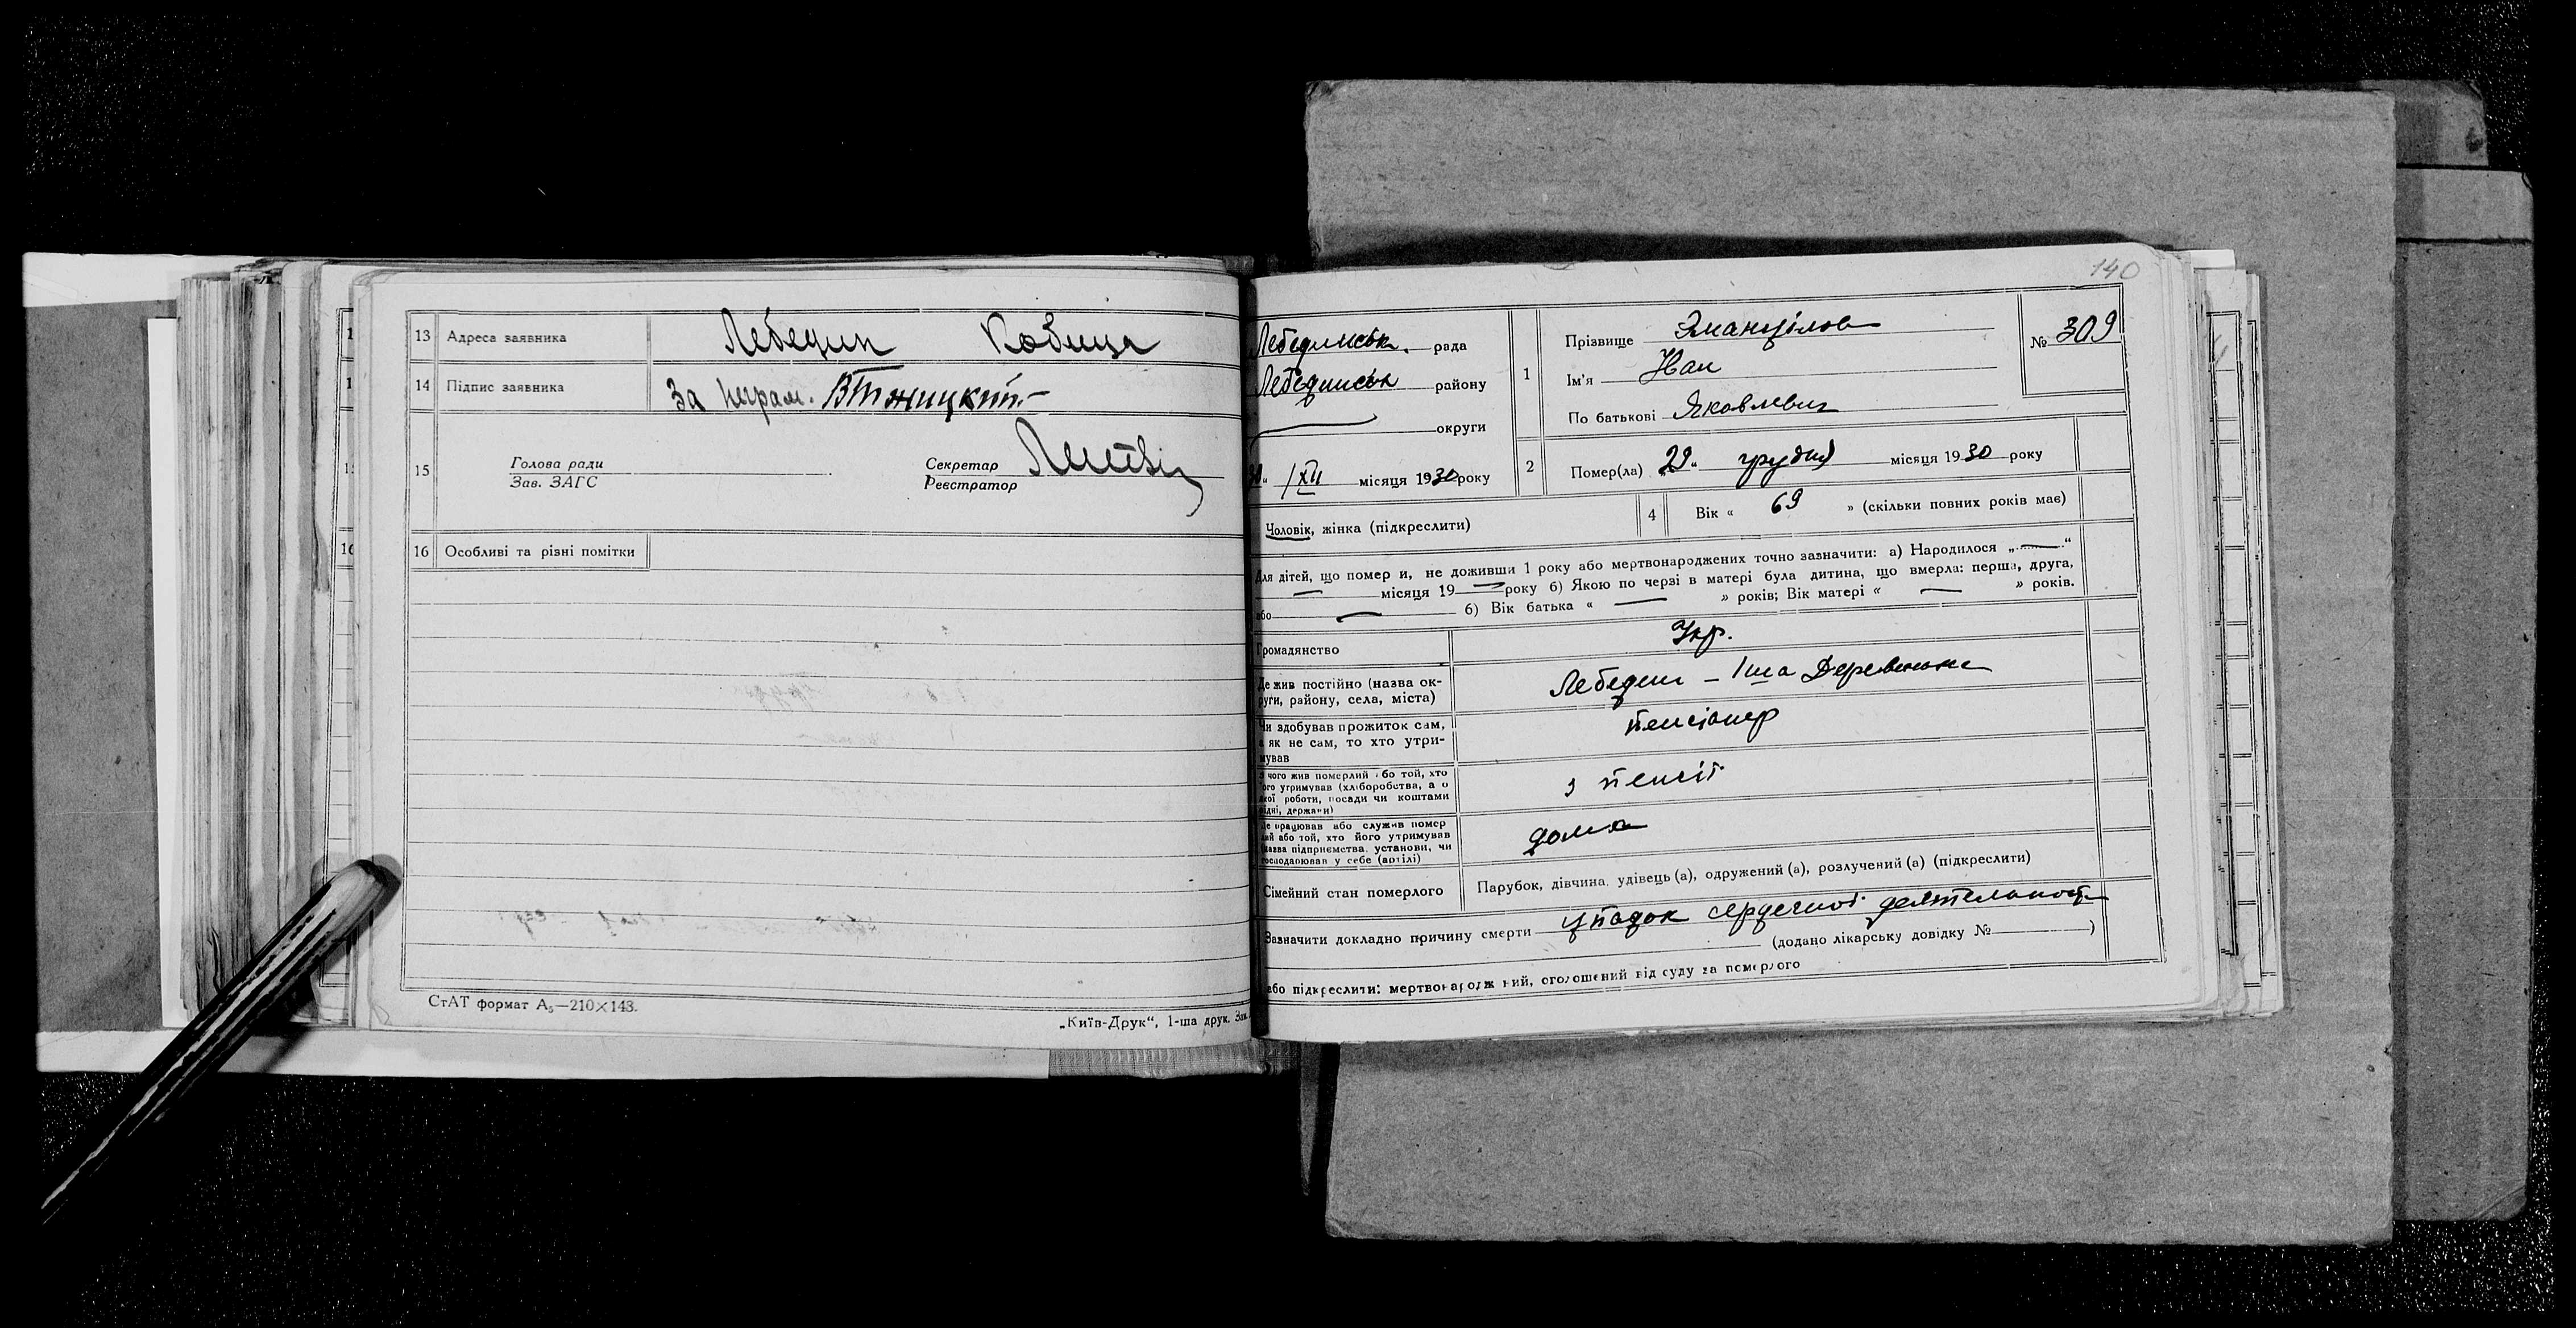 13 Адреса заявника Лебедин Кобища
14 Підпис заявника За неграм.
15 Голова ради
Зав. ЗАГС
Секретар
Реєстратор
16 Особливі та різні помітки
СтАТ формат А₅—210×143.
„Київ-Друк“, 1-ша друк. Зак.
140
Лебединськ. рада
Лебединськ району
округи
30 „ /XII місяця 1930 року
1 Прізвище
Ім'я Иван
По батькові Яковлевич
№ 309
2 Помер(ла) „29„ грудня місяця 1930 року
Чоловік, жінка (підкреслити)
4 Вік « 69 » (скільки повних років має)
Для дітей, що помер и, не доживши 1 року або мертвонароджених точно зазначити: а) Народилося „ — “
— місяця 19 — року б) Якою по черзі в матері була дитина, що вмерла: перша, друга,
або — б) Вік батька « — » років; Вік матері « — » років.
Громадянство Укр.
Де жив постійно (назва ок-
руги, району, села, міста) Лебедин – 1ша
Чи здобував прожиток сам,
а як не сам, то хто утри-
мував пенсіонер
з чого жив померлий або той, хто
його утримував (хліборобства, а о
якої роботи, посади чи коштами
рідні, держави) з пенсії
Де працював або служив помер
лий або той, хто його утримував
(назва підприємства, установи, чи
господарював у себе (артілі) дома
Сімейний стан померлого Парубок, дівчина, удівець(а), одружений(а), розлучений(а) (підкреслити)
Зазначити докладно причину смерти упадок сердечної деятельност
(додано лікарську довідку № )
або підкреслити: мертвонародж ний, оголошений від суду за померлого